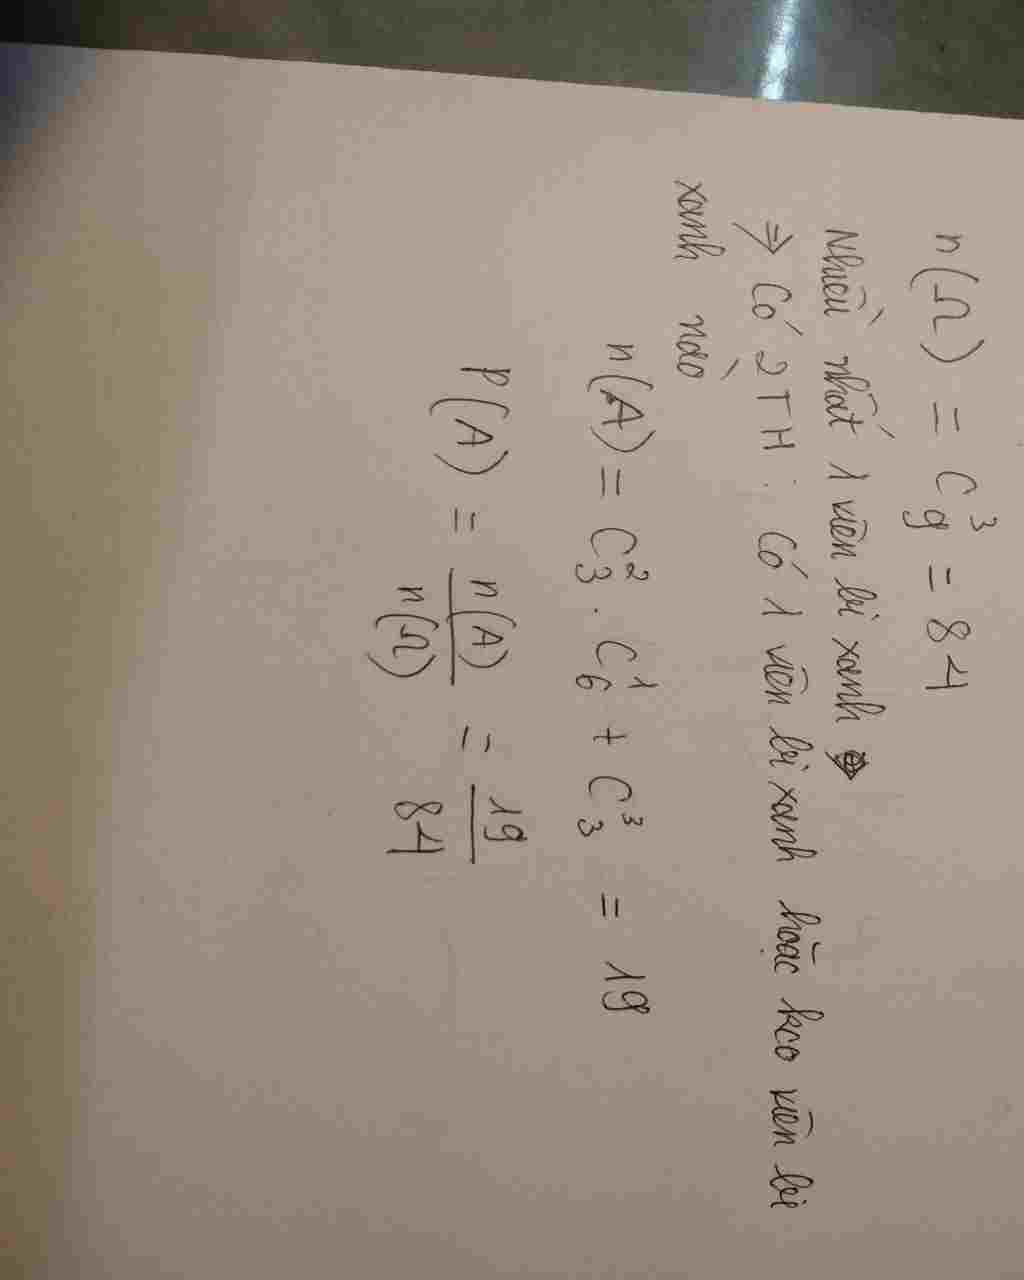 n(Ω) = C₉³ = 84
Nhiều nhất 1 viên bi xanh
⇒ Có 2TH : Có 1 viên bi xanh hoặc kco viên bi
xanh nào
n(A) = C₃² . C₆¹ + C₃³ = 19
P(A) = n(A)/n(Ω) = 19/84